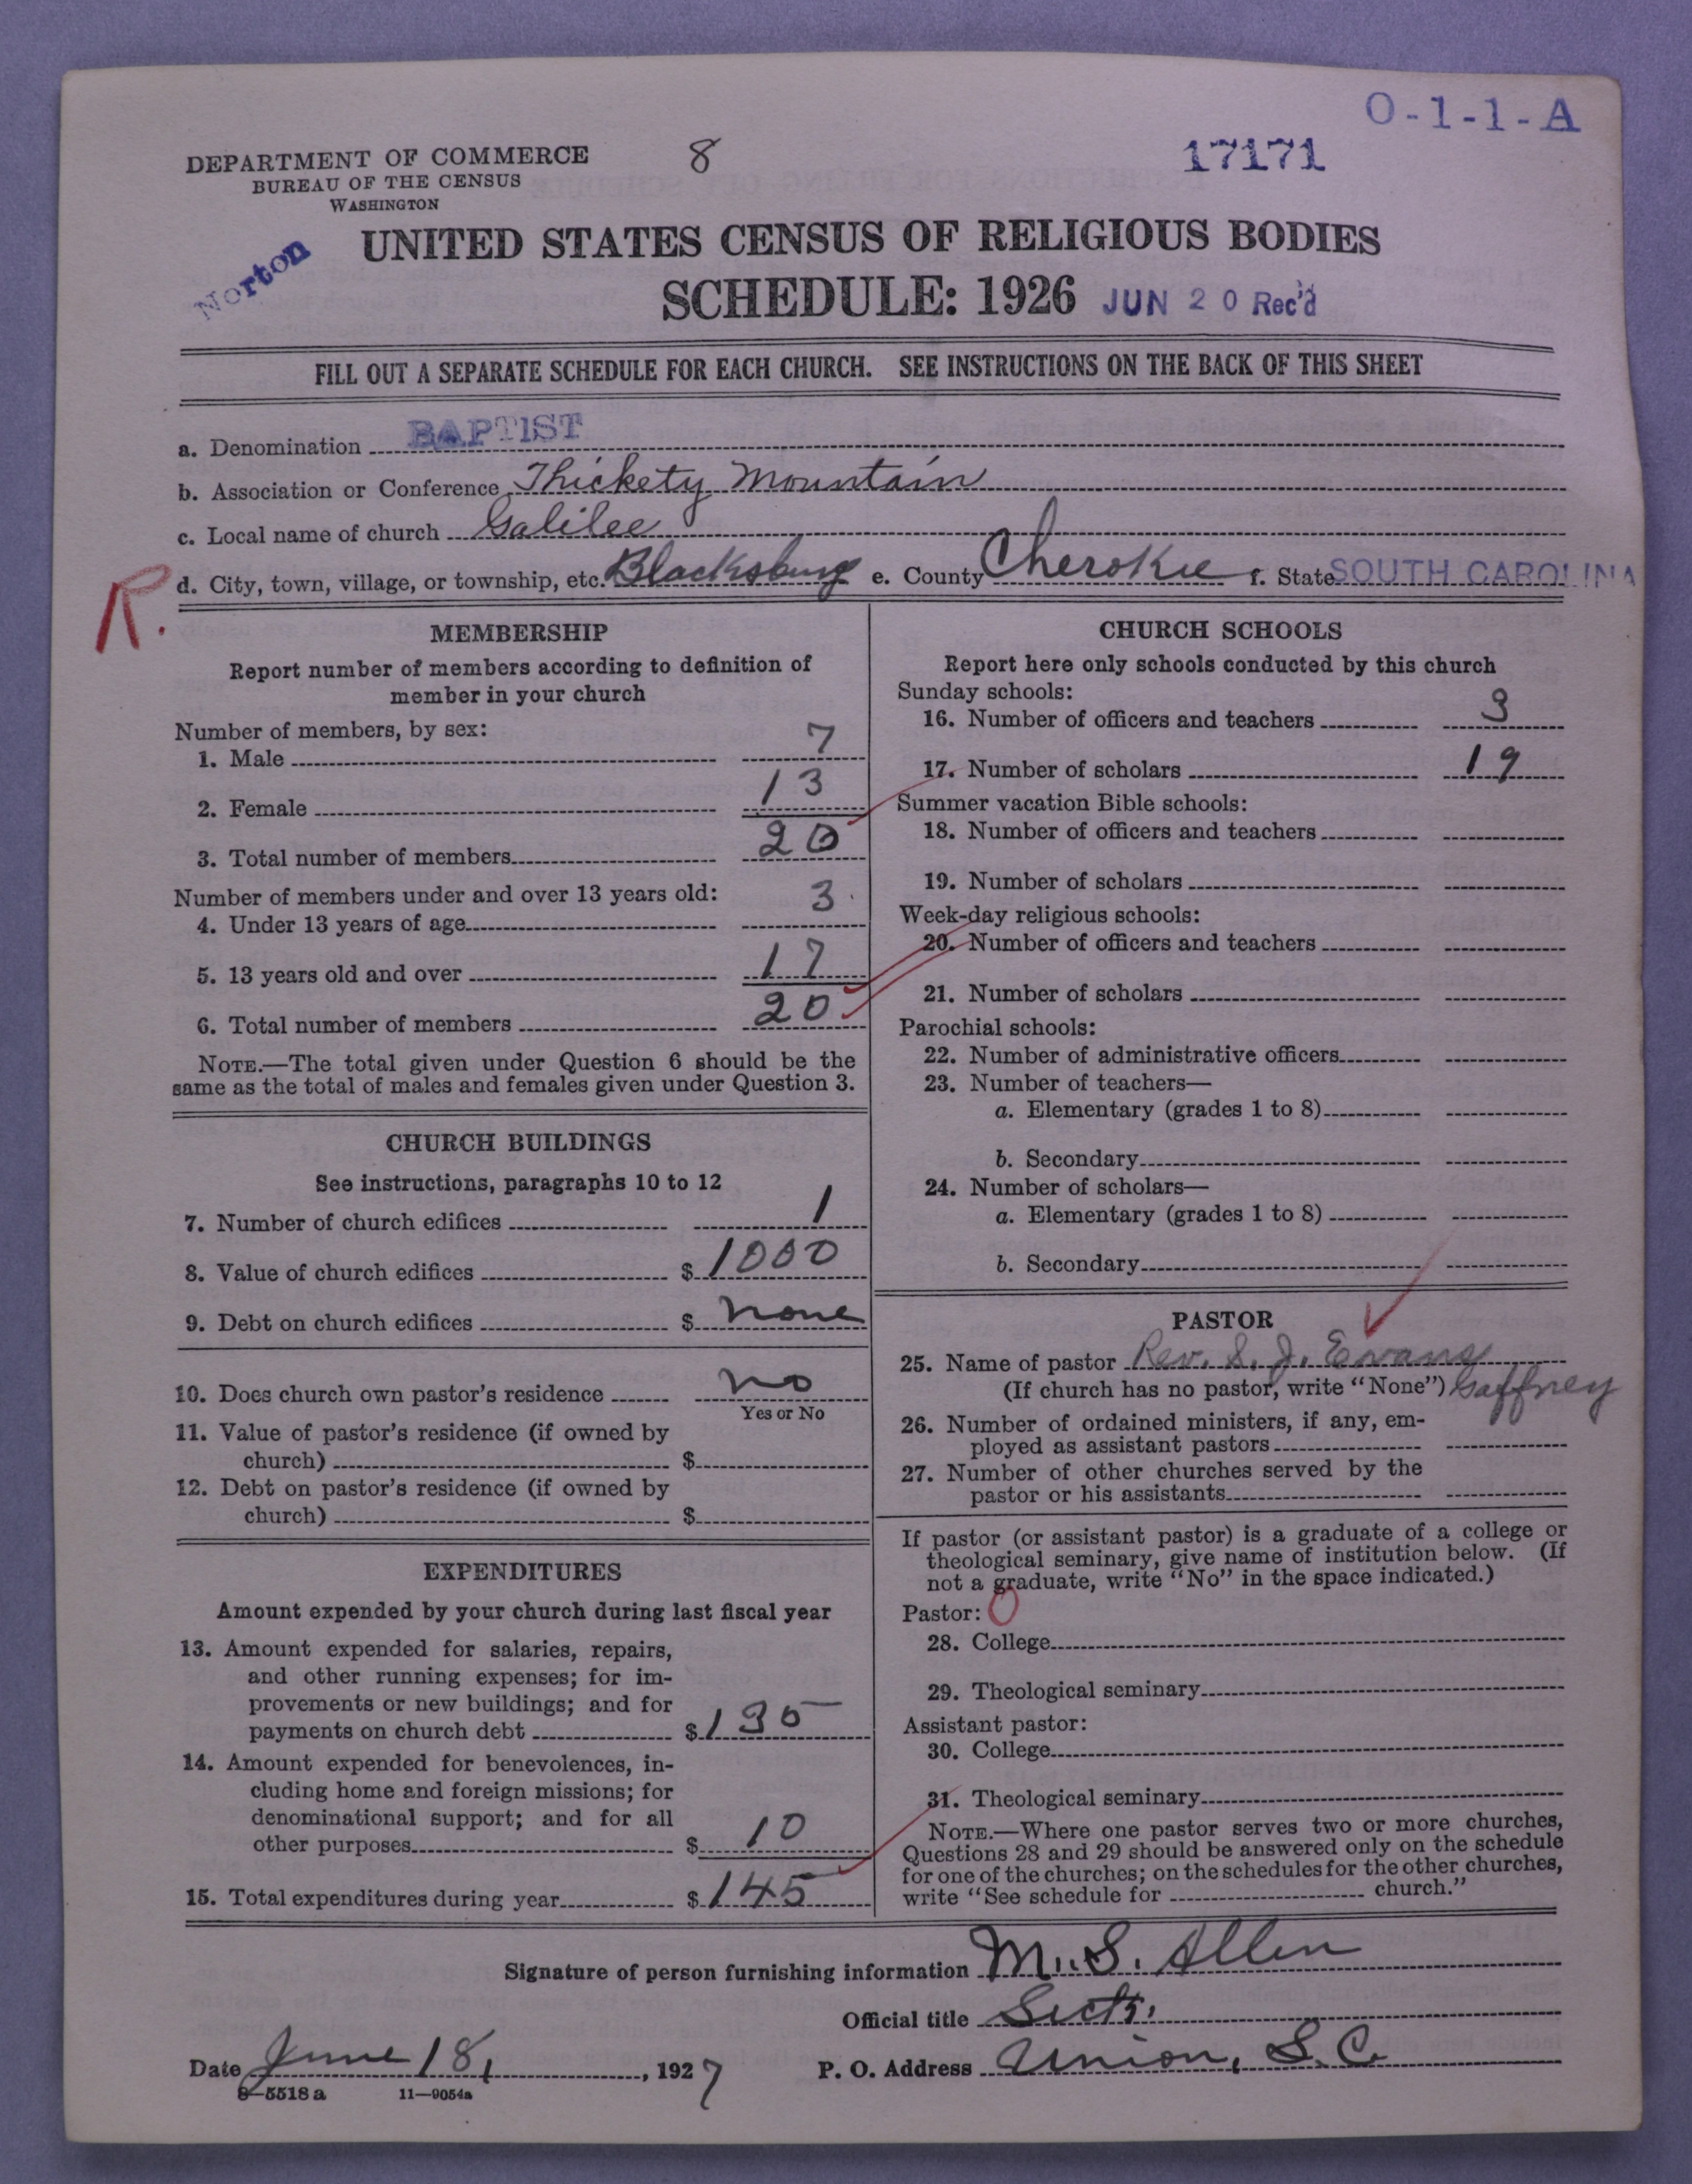 O-1-1-A
DEPARTMENT OF COMMERCE 8 17171
BUREAU OF THE CENSUS
WASHINGTON
Norton
UNITED STATES CENSUS OF RELIGIOUS BODIES
SCHEDULE: 1926 JUN 20 Rec'd
FILL OUT A SEPARATE SCHEDULE FOR EACH CHURCH. SEE INSTRUCTIONS ON THE BACK OF THIS SHEET
a. Denomination BAPTIST
b. Association or Conference Thickety Mountain
c. Local name of church Galilee
R. d. City, town, village, or township, etc. Blacksburg e. County Cherokee f. State SOUTH CAROLINA
MEMBERSHIP
Report number of members according to definition of
member in your church
Number of members, by sex:
1. Male 7
2. Female 13
3. Total number of members 20
Number of members under and over 13 years old:
4. Under 13 years of age 3
5. 13 years old and over 17
6. Total number of members 20
NOTE.—The total given under Question 6 should be the
same as the total of males and females given under Question 3.
CHURCH BUILDINGS
See instructions, paragraphs 10 to 12
7. Number of church edifices 1
8. Value of church edifices $ 1000
9. Debt on church edifices $ none
10. Does church own pastor's residence no
Yes or No
11. Value of pastor's residence (if owned by
church) $
12. Debt on pastor's residence (if owned by
church) $
EXPENDITURES
Amount expended by your church during last fiscal year
13. Amount expended for salaries, repairs,
and other running expenses; for im-
provements or new buildings; and for
payments on church debt $ 135
14. Amount expended for benevolences, in-
cluding home and foreign missions; for
denominational support; and for all
other purposes $ 10
15. Total expenditures during year $ 145
CHURCH SCHOOLS
Report here only schools conducted by this church
Sunday schools:
16. Number of officers and teachers 3
17. Number of scholars 19
Summer vacation Bible schools:
18. Number of officers and teachers
19. Number of scholars
Week-day religious schools:
20. Number of officers and teachers
21. Number of scholars
Parochial schools:
22. Number of administrative officers
23. Number of teachers—
a. Elementary (grades 1 to 8)
b. Secondary
24. Number of scholars—
a. Elementary (grades 1 to 8)
b. Secondary
PASTOR
25. Name of pastor Rev. S. J. Evans
(If church has no pastor, write "None") Gaffney
26. Number of ordained ministers, if any, em-
ployed as assistant pastors
27. Number of other churches served by the
pastor or his assistants
If pastor (or assistant pastor) is a graduate of a college or
theological seminary, give name of institution below. (If
not a graduate, write "No" in the space indicated.)
Pastor: O
28. College
29. Theological seminary
Assistant pastor:
30. College
31. Theological seminary
NOTE.—Where one pastor serves two or more churches,
Questions 28 and 29 should be answered only on the schedule
for one of the churches; on the schedules for the other churches,
write "See schedule for church."
Signature of person furnishing information M. S. Allen
Official title Sect.
Date June 18, 1927 P. O. Address Union, S. C.
8—5518 a 11—9054a